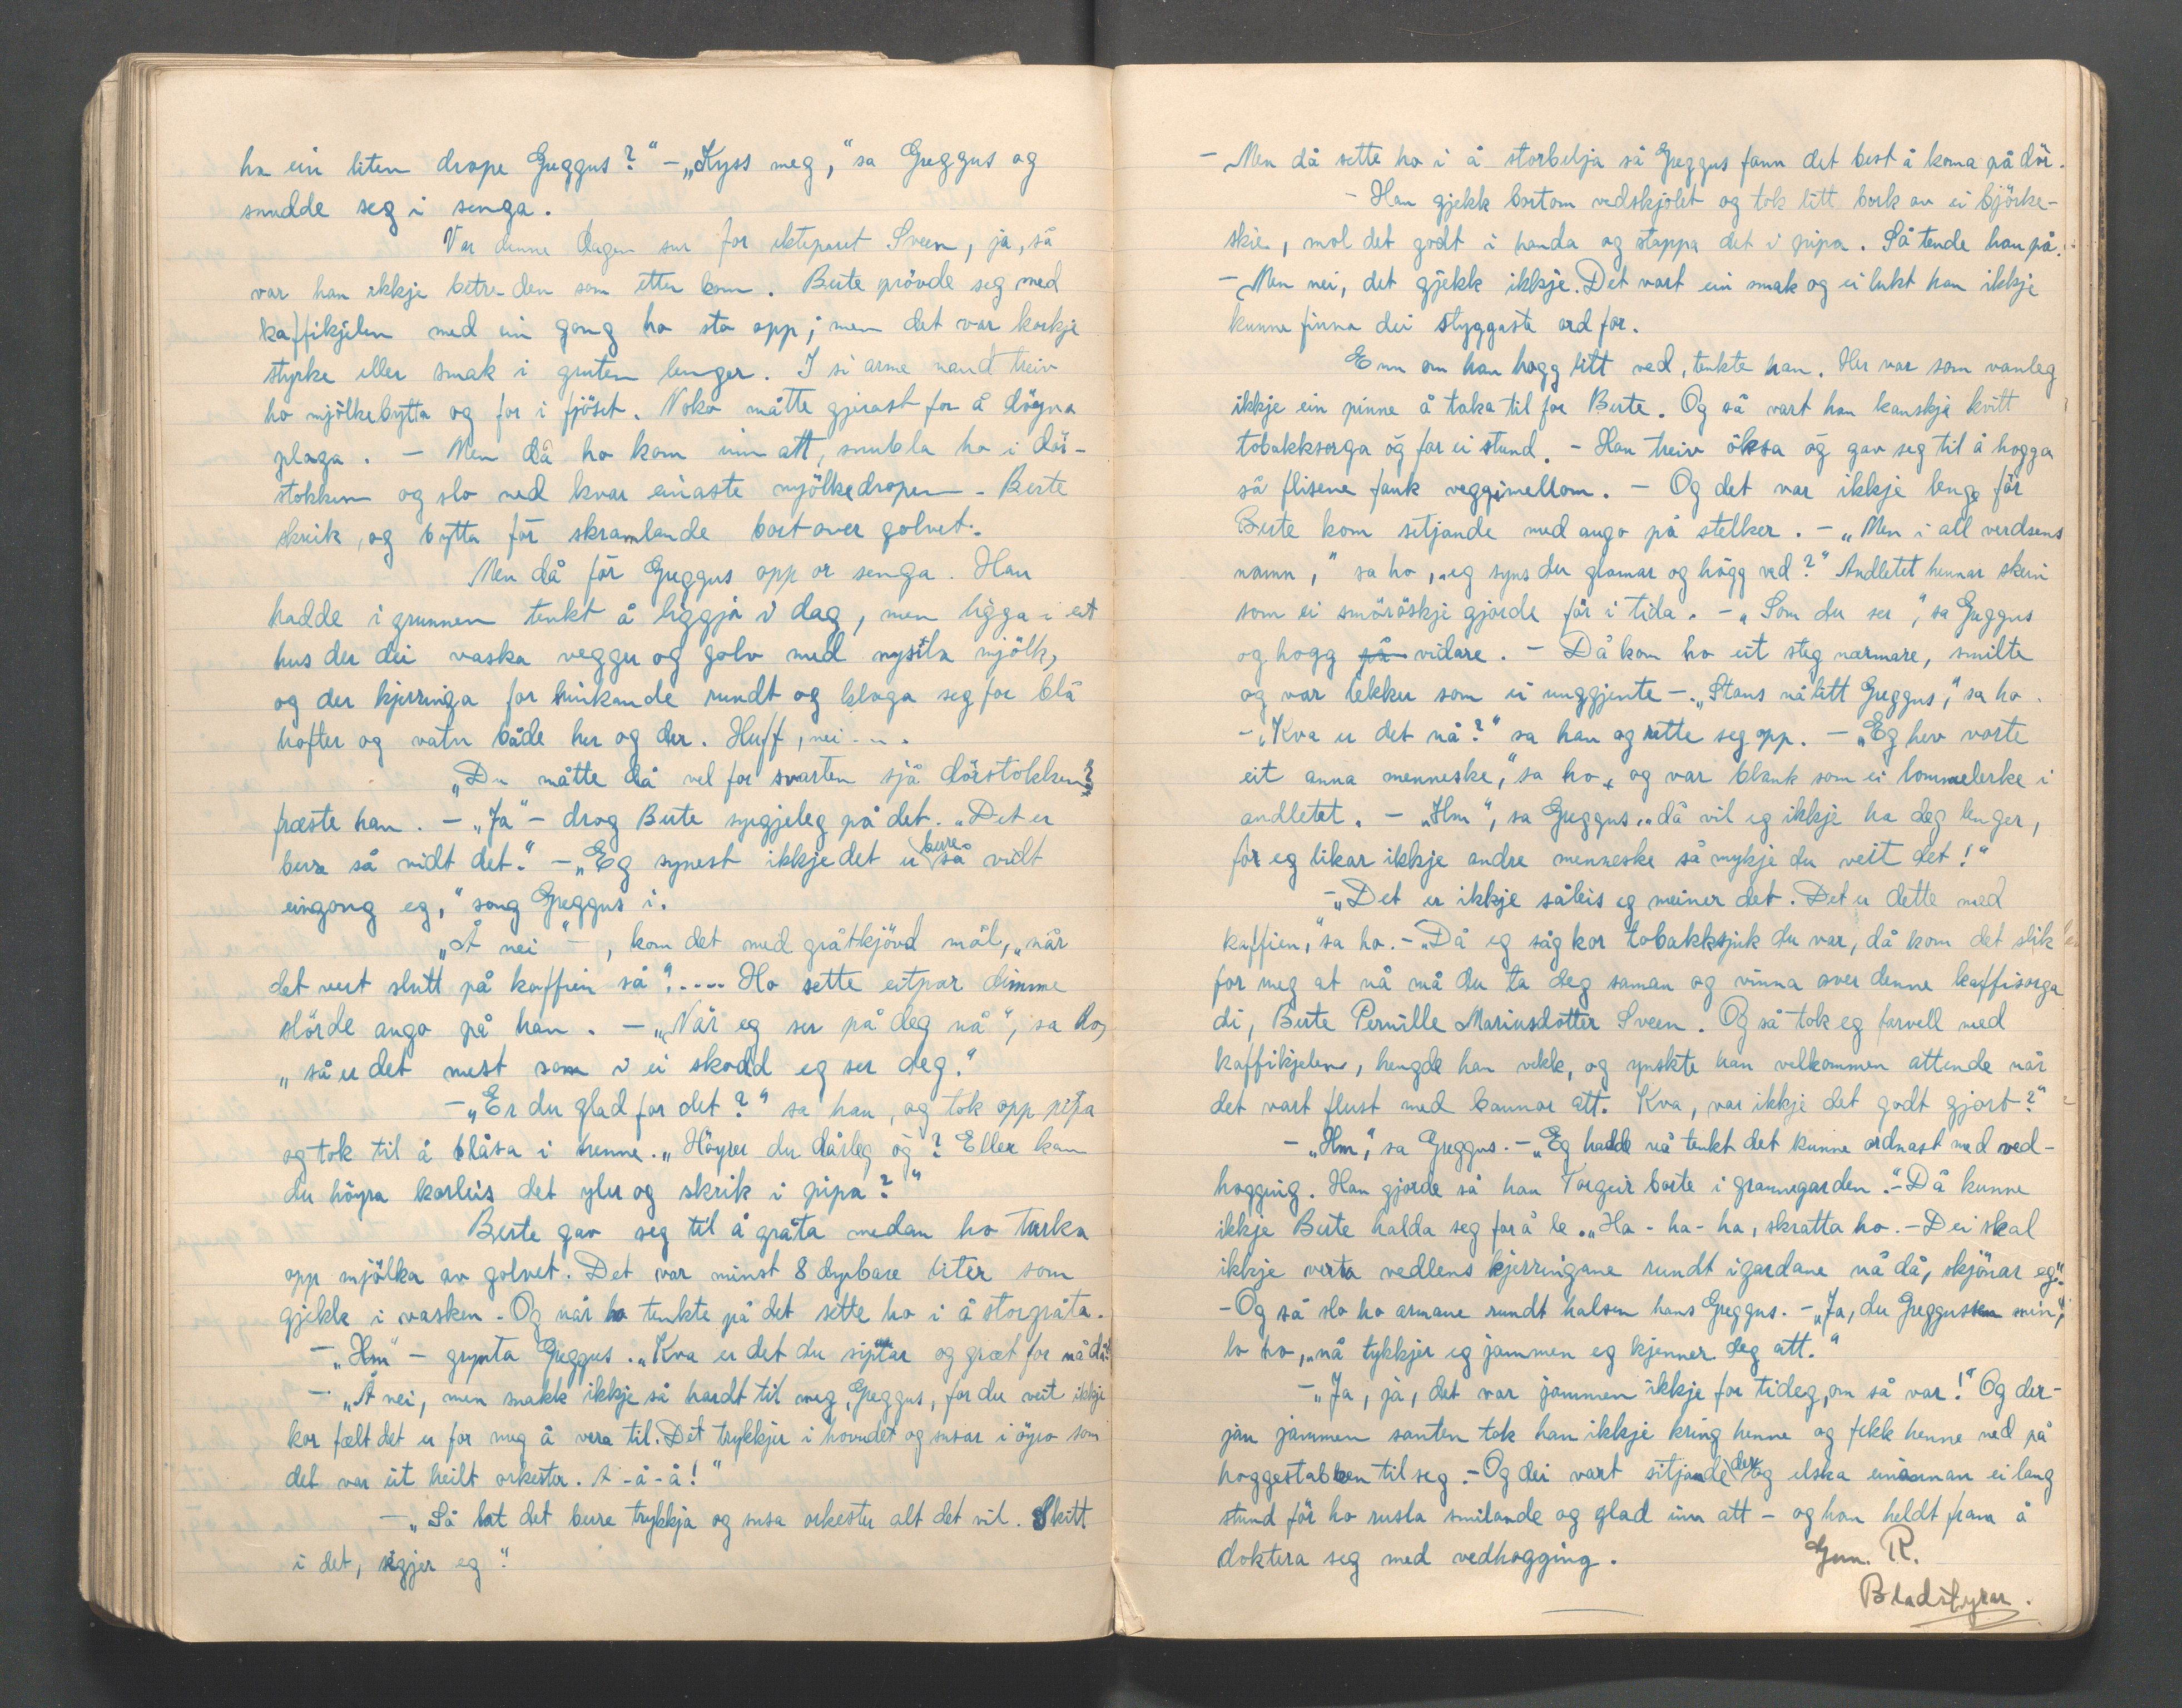 ha ein liten drope Greggus?" – „Kyss meg," sa Greggus og
snudde seg i senga.
Var denne dagen sur for ekteparet Sveen, ja, så
var han ikkje betre den som etter kom. Berte prövde seg med
kaffikjelen med ein gong ho sto opp; men det var korkje
styrke eller smak i gruten lenger. I si arme naud treiv
ho mjölkebytta og for i fjöset. Noko måtte gjerast for å döyva
plaga. – Men då ho kom inn att, snubla ho i dör-
stokken og slo ned kvar einaste mjölkedropen. Berte
skreik, og bytta fór skramlande bortover golvet.
Men då fór Greggus opp or senga. Han
hadde i grunnen tenkt å liggja i dag, men ligga i eit
hus der dei vaska vegger og golv med nysila mjölk,
og der kjerringa for hinkande rundt og klaga seg for blå
hofter og vatn både her og der. Huff, nei ...
„Du måtte då vel for svarten sjå dörstokken?"
fræste han. – „Ja" – drog Berte syrgjeleg på det. „Det er
berre så vidt det." – „Eg synest ikkje det er berre så vidt
eingong eg," song Greggus i.
„Å nei" –, kom det med gråtkjövd mål, „når
det vert slutt på kaffien så".... Ho sette eitpar dimme
slörde augo på han. – „Når eg ser på deg nå", sa ho,
„så er det mest som i ei skodd eg ser deg."
– „Er du glad for det?" sa han, og tok opp pipa
og tok til å blåsa i henne. „Höyrer du dårleg óg? Eller kan
du höyra korleis det yler og skrik i pipa?"
Berte gav seg til å gråta medan ho turka
opp mjölka av golvet. Det var minst 8 dyrbare liter som
gjekk i vasken. Og når ho tenkte på det sette ho i å storgråta.
– „Hm" – grynta Greggus. „Kva er det du siptar og græt for nå då?"
– „Å nei, men snakk ikkje så hardt til meg, Greggus, for du veit ikkje
kor fælt det er for meg å vera til. Det trykkjer i hovudet og susar i öyro som
det var eit heilt orkester. Å-å-å!"
– „Så lat det berre trykkja og susa orkester alt det vil. Skitt
i det, sigjer eg".
– Men då sette ho i å storbelja så Greggus fann det best å koma på dör.
– Han gjekk bortom vedskjolet og tok litt bork av ei björke-
skie, mol det godt i handa og stappa det i pipa. Så tende han på.
– Men nei, det gjekk ikkje. Det vart ein smak og ei lukt han ikkje
kunne finna dei styggaste ord for.
Enn om han hogg litt ved, tenkte han. Her var som vanleg
ikkje ein pinne å taka til for Berte. Og så vart han kanskje kvitt
tobakksorga óg for ei stund. – Han treiv öksa óg gav seg til å hogga
så flisene fauk veggimellom. – Og det var ikkje lenge för
Berte kom setjande med augo på stelker. – „Men i all verdsens
namn," sa ho, „eg syns du glamar og högg ved?" Andletet hennar skein
som ei smöröskje gjorde för i tida. – „Som du ser", sa Greggus
og hogg vidare. – Då kom ho eit steg nærmare, smilte
og var lekker som ei unggjente – „Stans nå litt Greggus," sa ho.
– „Kva er det nå?" sa han og rette seg opp. – „Eg hev vorte
eit anna menneske," sa ho, og var blank som ei lommelerke i
andletet. – „Hm", sa Greggus „då vil eg ikkje ha deg lenger,
för eg likar ikkje andre menneske så mykje du veit det!"
– „Det er ikkje såleis eg meiner det. Det er dette med
kaffien," sa ho. – „Då eg såg kor tobakksjuk du var, då kom det slik
for meg at nå må du ta deg saman og vinna over denne kaffisorga
di, Berte Pernille Mariusdotter Sveen. Og så tok eg farvell med
kaffikjelen, hengde han vekk, og ynskte han velkommen attende når
det vart flust med baunnar att. Kva, var ikkje det godt gjort?"
– „Hm", sa Greggus. – „Eg hadde nå tenkt det kunne ordnast med ved-
hogging. Han gjorde så han Torgeir borte i grannegarden". – Då kunne
ikkje Berte halda seg for å le. „Ha-ha-ha, skratta ho. – Dei skal
ikkje verta vedlens kjerringane rundt i gardane nå då, skjönar eg".
– Og så slo ho armane rundt halsen hans Greggus. – „Ja, du Greggusen min,"
lo ho, „nå tykkjer eg jammen eg kjenner deg att."
– „Ja, ja, det var jammen ikkje for tideg, om så var!" Og der-
jau jammen santen tok han ikkje kring henne og fekk henne ned på
hoggestabben til seg. – Og dei vart sitjande der og elska einannan ei lang
stund för ho rusla smilande og glad inn att – og han heldt fram å
doktera seg med vedhogging.
Gun. R.
Bladstyrar.